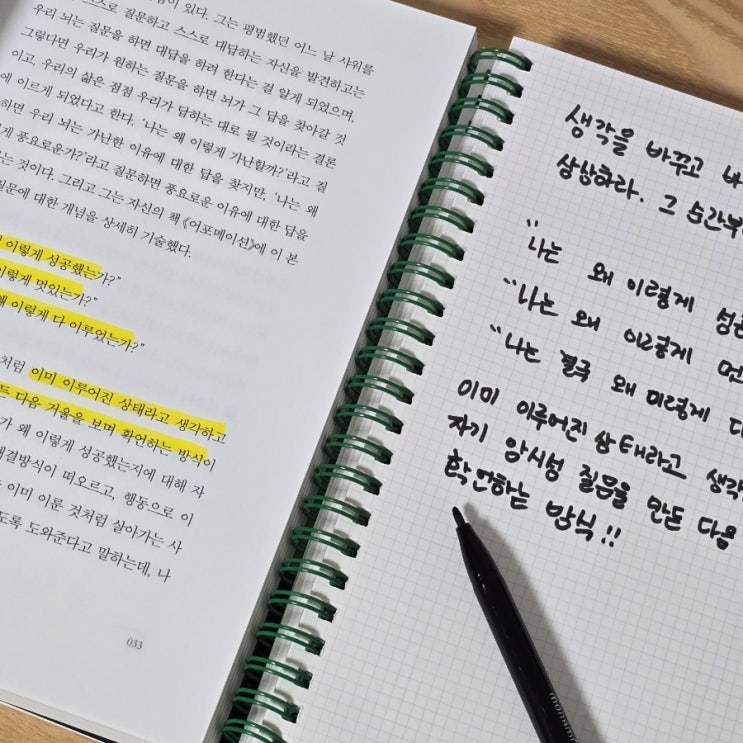 이 있다. 그는 평범했던 어느 날 샤워를
스스로 질문하고 스스로 대답하는 자신을 발견하고는
우리 뇌는 질문을 하면 대답을 하려 한다는 걸 알게 되었으며,
그렇다면 우리가 원하는 질문을 하면 뇌가 그 답을 찾아갈 것
이고, 우리의 삶은 점점 우리가 답하는 대로 될 것이라는 결론
에 이르게 되었다고 한다. ‘나는 왜 이렇게 가난할까?’라고 질
하면 우리 뇌는 가난한 이유에 대한 답을 찾지만, ‘나는 왜
게 풍요로운가?’라고 질문하면 풍요로운 이유에 대한 답을
는 것이다. 그리고 그는 자신의 책 《어포메이션》에 이 본
질문에 대한 개념을 상세히 기술했다.
이렇게 성공했는가?”
이렇게 멋있는가?”
왜 이렇게 다 이루었는가?”
처럼 이미 이루어진 상태라고 생각하고
든 다음 거울을 보며 확언하는 방식이
가 왜 이렇게 성공했는지에 대해 자
해결방식이 떠오르고, 행동으로 이
이미 이룬 것처럼 살아가는 사
도록 도와준다고 말하는데, 나
033
생각을 바꾸고 바
상상하라. 그 순간부
“나는 왜 이렇게 성공
“나는 왜 이렇게 먼
“나는 결국 왜 이렇게 다
이미 이루어진 상태라고 생각
자기 암시성 질문을 만든 다음
확언하는 방식!!
monami